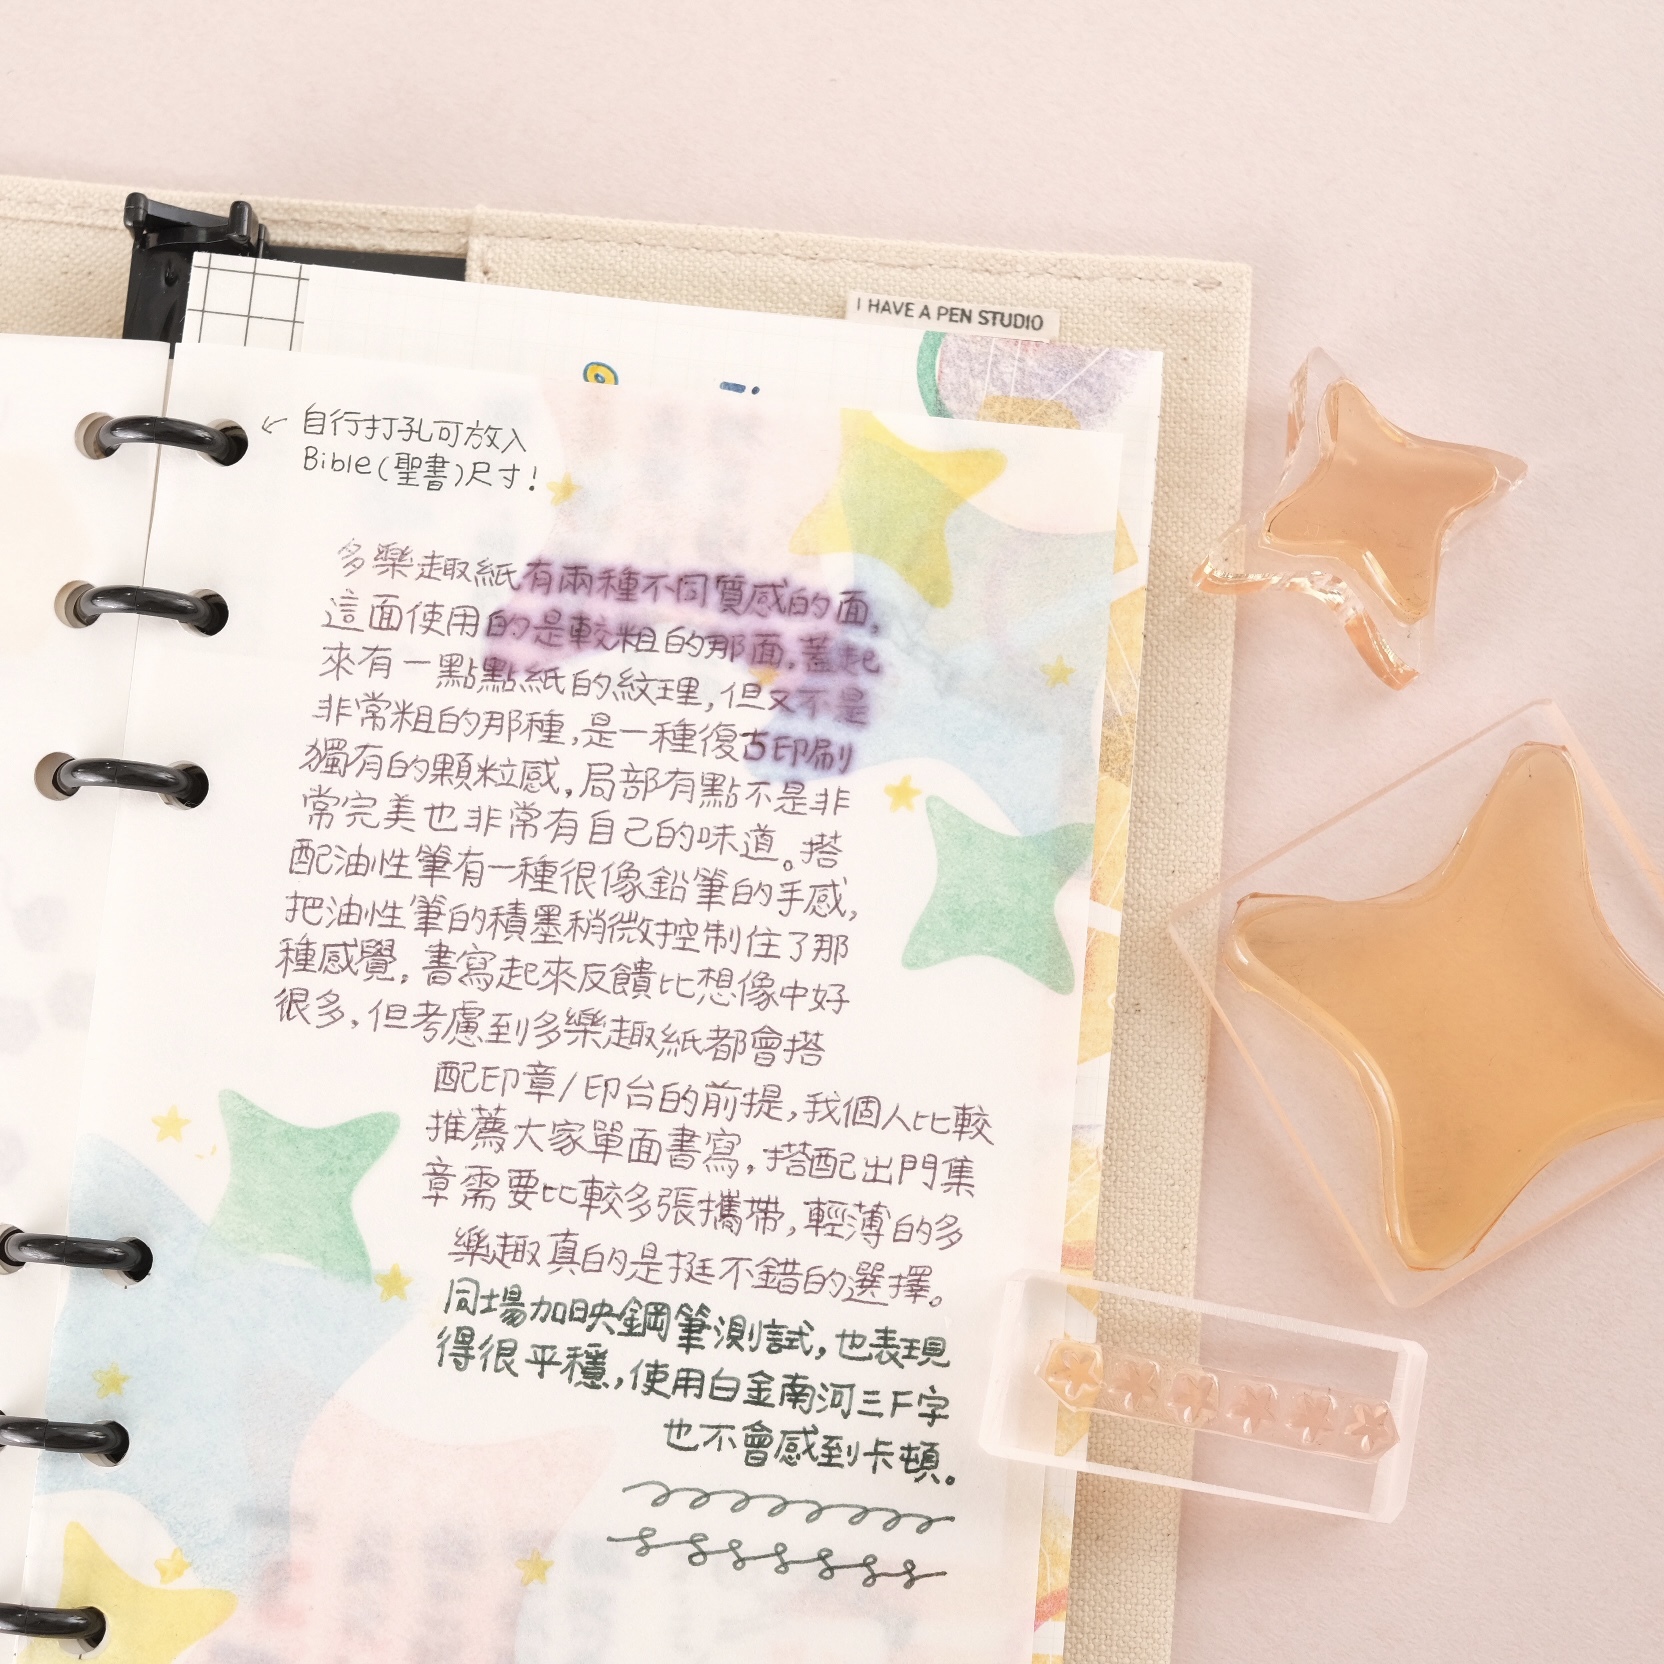 I HAVE A PEN STUDIO
← 自行打孔可放入
Bible(聖書)尺寸!
多樂趣紙有兩種不同質感的面,
這面使用的是較粗的那面,蓋起
來有一點點紙的紋理,但又不是
非常粗的那種,是一種復古印刷
獨有的顆粒感,局部有點不是非
常完美也非常有自己的味道。搭
配油性筆有一種很像鉛筆的手感,
把油性筆的積墨稍微控制住了那
種感覺,書寫起來反饋比想像中好
很多,但考慮到多樂趣紙都會搭
配印章/印台的前提,我個人比較
推薦大家單面書寫,搭配出門集
章需要比較多張攜帶,輕薄的多
樂趣真的是挺不錯的選擇。
同場加映鋼筆測試,也表現
得很平穩,使用白金南河三F字
也不會感到卡頓。